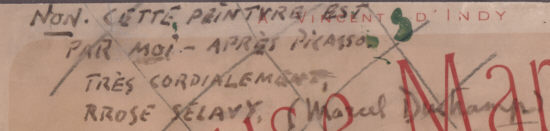 À VINCENT D'INDY
NON. CETTE PEINTURE EST
PAR MOI - APRÈS PICASSO
TRÈS CORDIALEMENT,
RROSE SÉLAVY, (Marcel Duchamp)